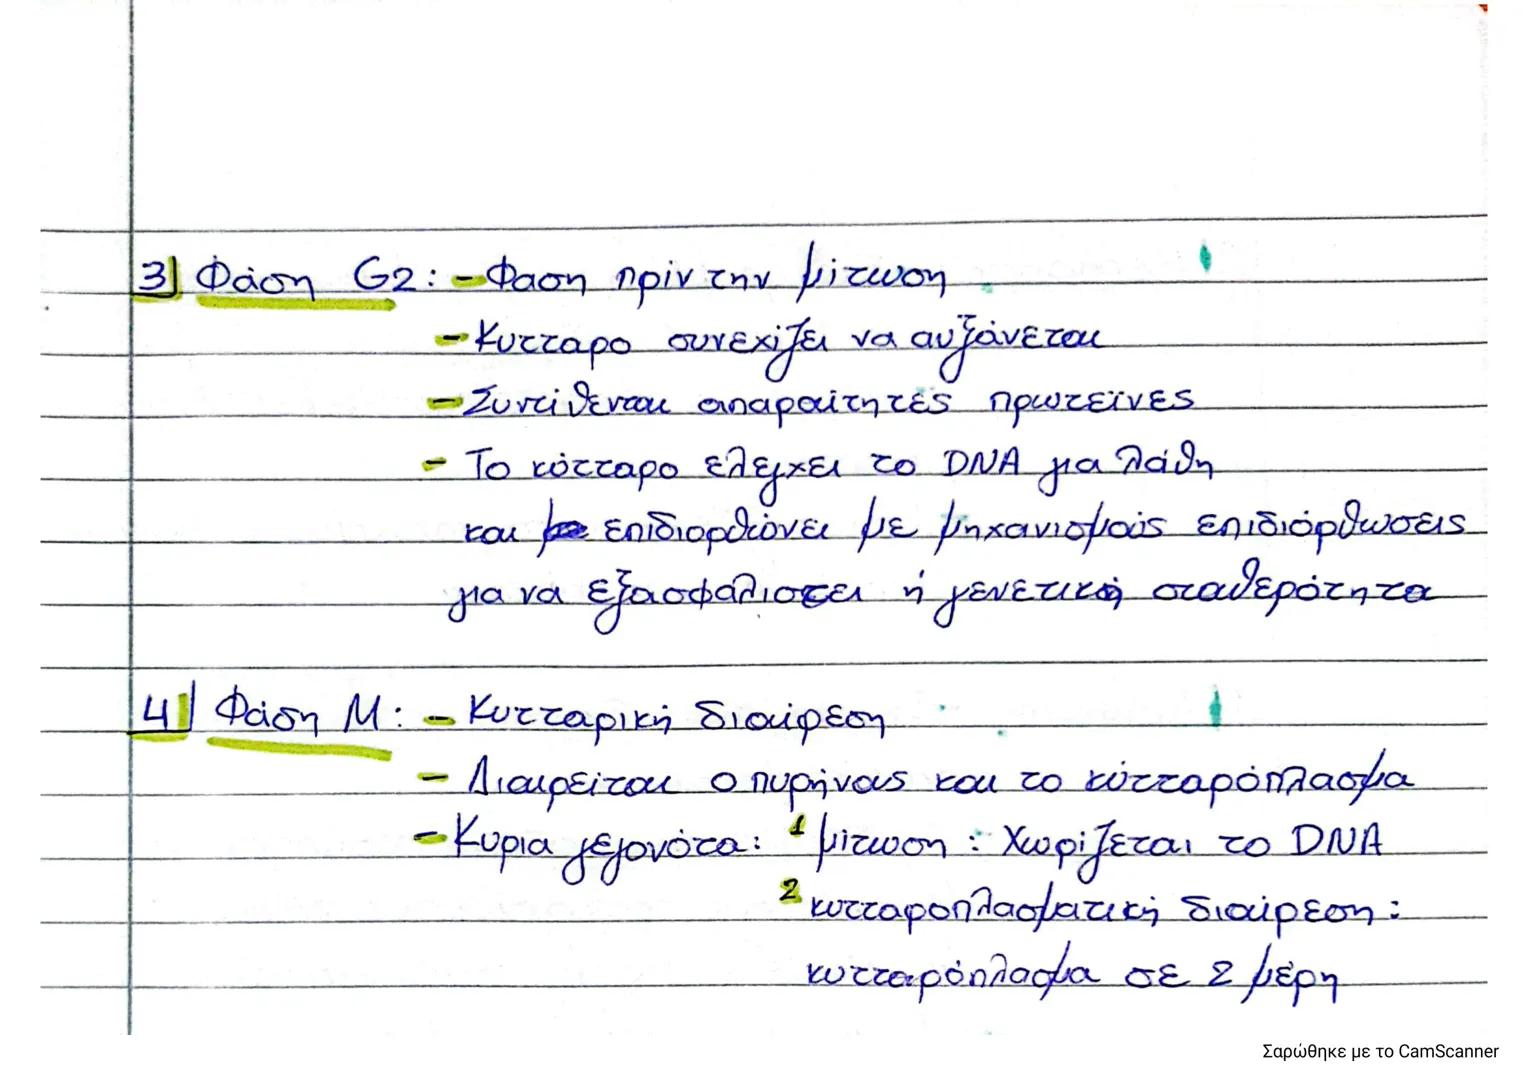 3] Φάση G2: - Φαση πρίν την μίτωση
- Κυτταρο συνεχίζει να αυξάνεται
- Συντίθενται απαραίτητές πρωτεΐνες
- Το κύτταρο ελεγχει το DNA για λάθη
και επιδιορθώνει με μηχανισμούς επιδιόρθωσεις
για να εξασφάλιστει ή γενετική σταθερότητα
4] Φάση Μ: - Κυτταρική διαίρεση
- Διαιρείται ο πυρήνας και το κύτταρόπλασμα
- Κυρια γεγονότα: 1 μίτωση : Χωρίζεται το DNA
2 κυτταροπλασματική διαίρεση :
κυτταρόπλασμα σε 2 μέρη
Σαρώθηκε με το CamScanner